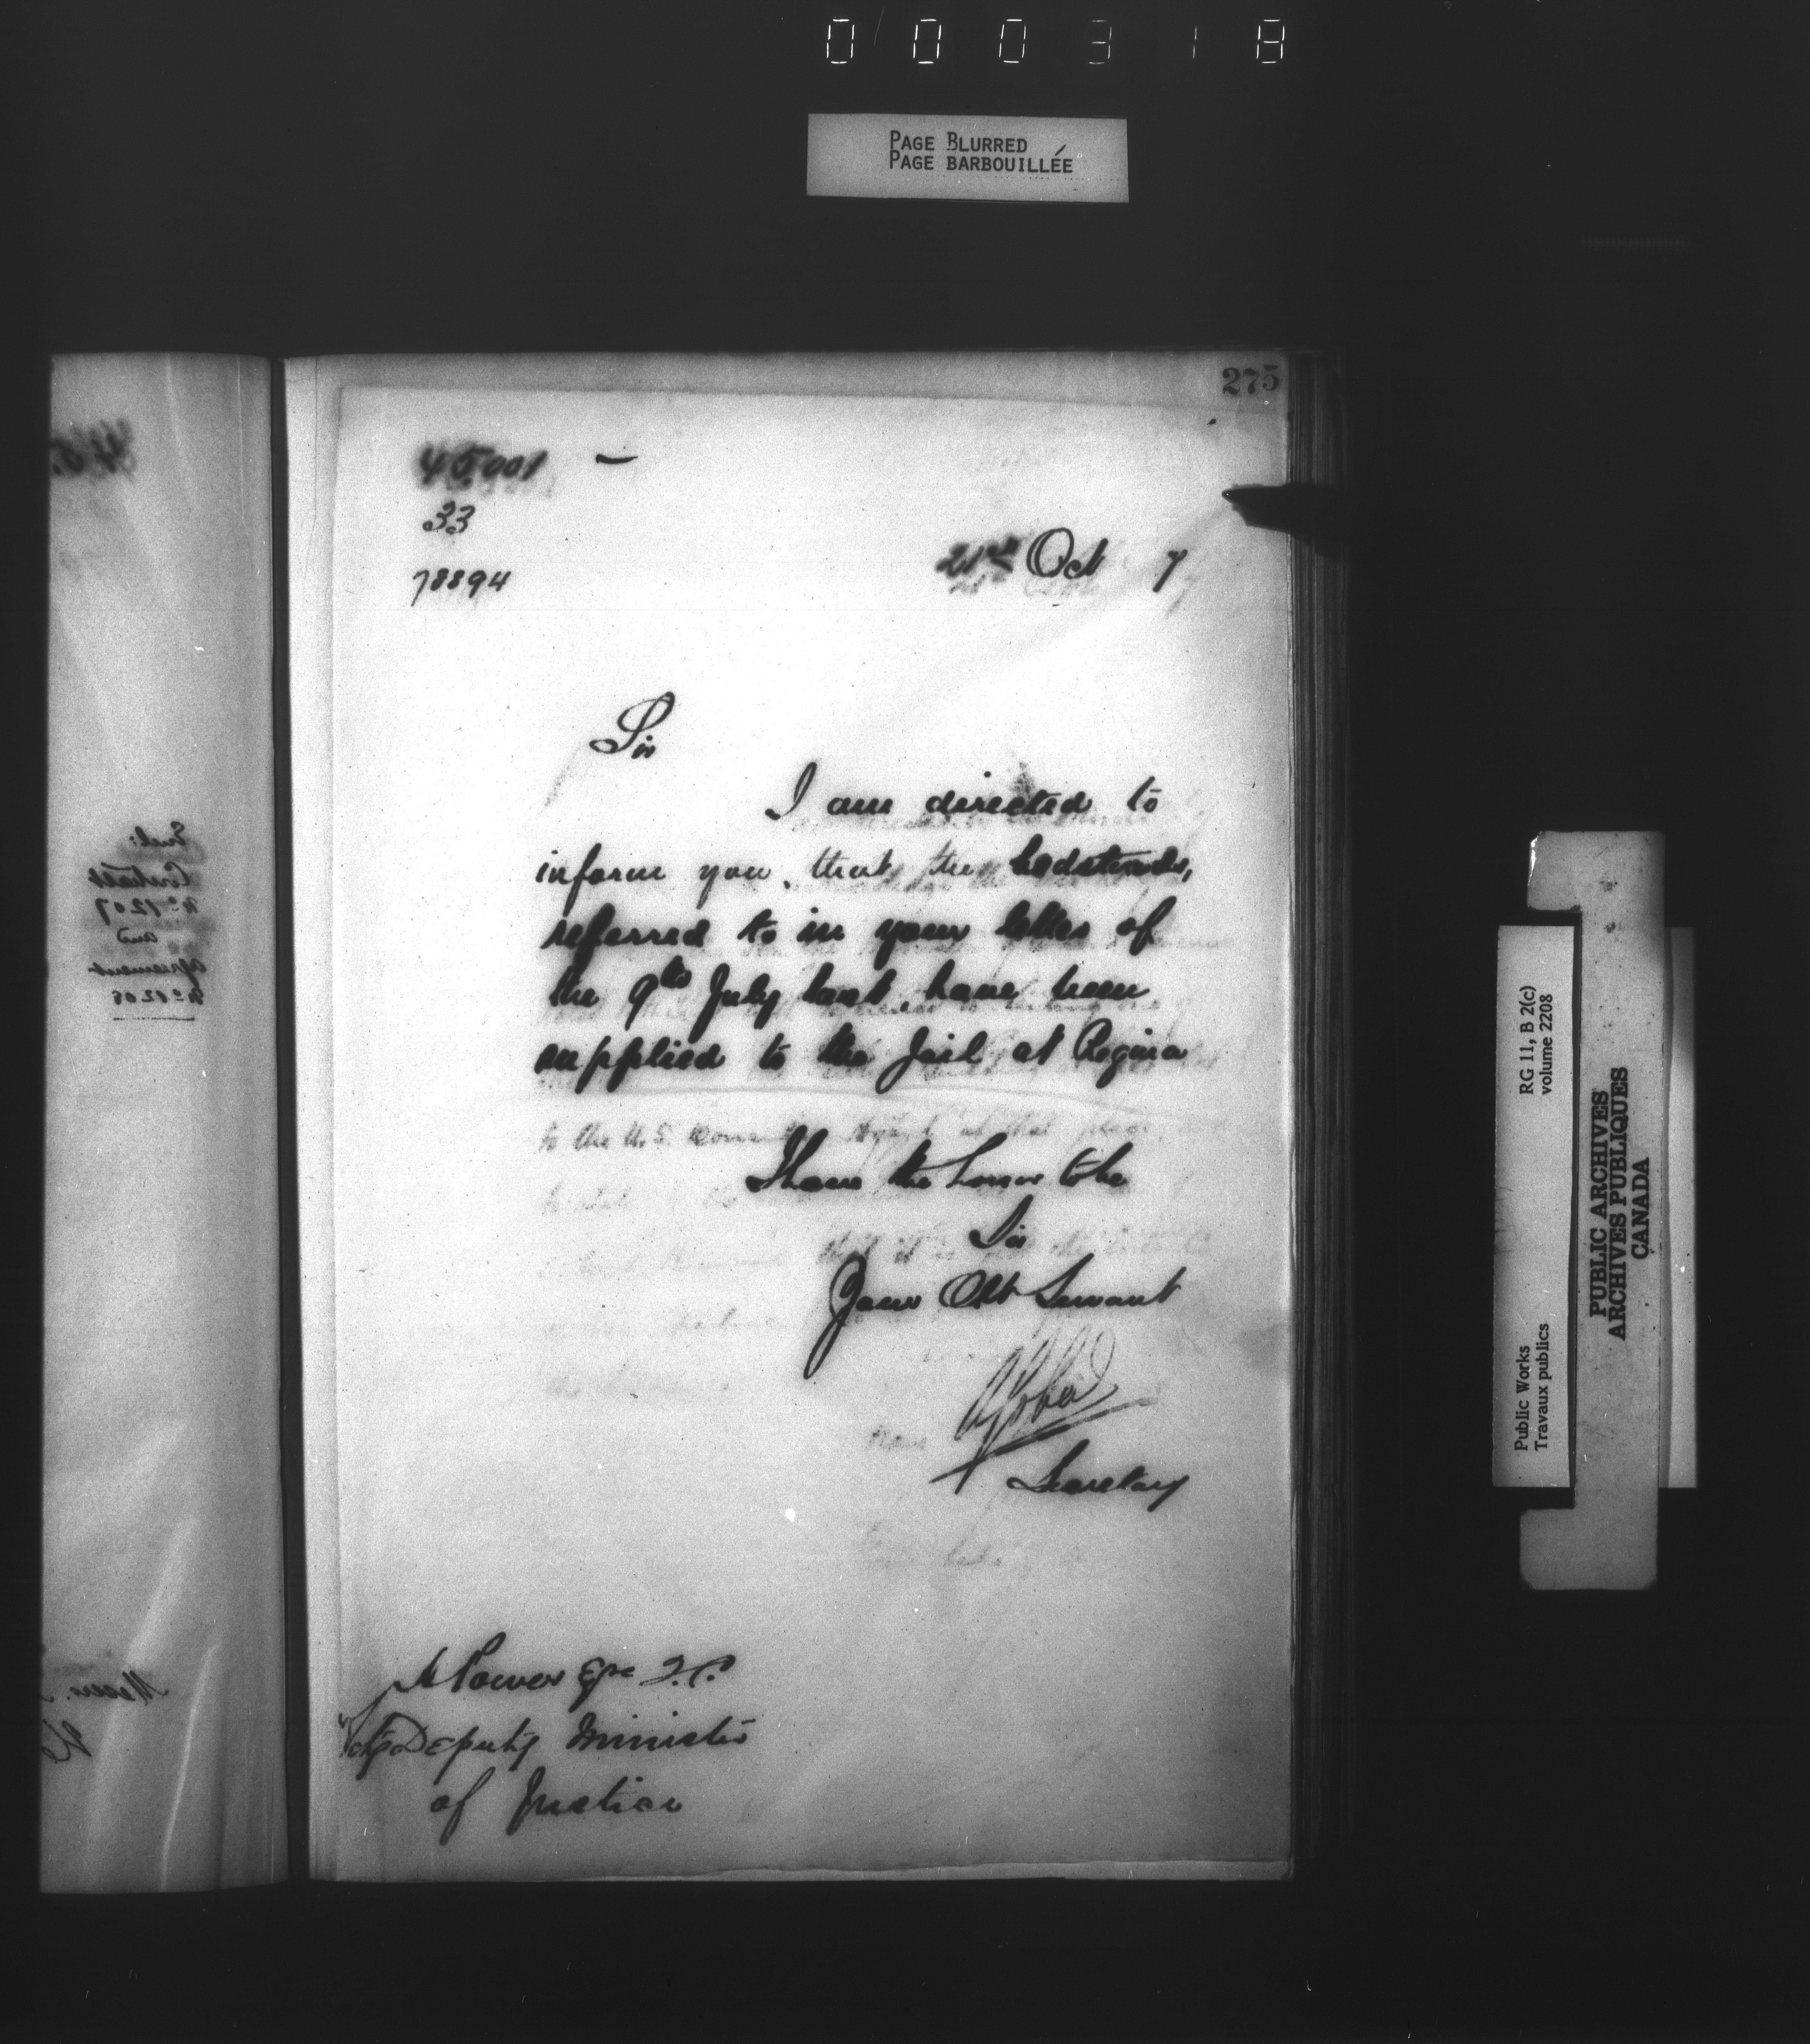 000318
PAGE BLURRED
PAGE BARBOUILLÉE
275
45001 —
33
78894
21st Oct 7
Sir
I am directed to
inform you, that the bedsteads,
referred to in your letter of
the 9th July last, have been
supplied to the Jail at Regina
to the U.S.
I have the honor to be
Sir
Your Obt Servant
Secretary
A Power Esqe Q.C.
Deputy Minister
of Justice
Encl:
Contract
No 1207
and
agreement
No 1208
Messrs.
RG 11, B 2(c)
volume 2208
Public Works
Travaux publics
PUBLIC ARCHIVES
ARCHIVES PUBLIQUES
CANADA